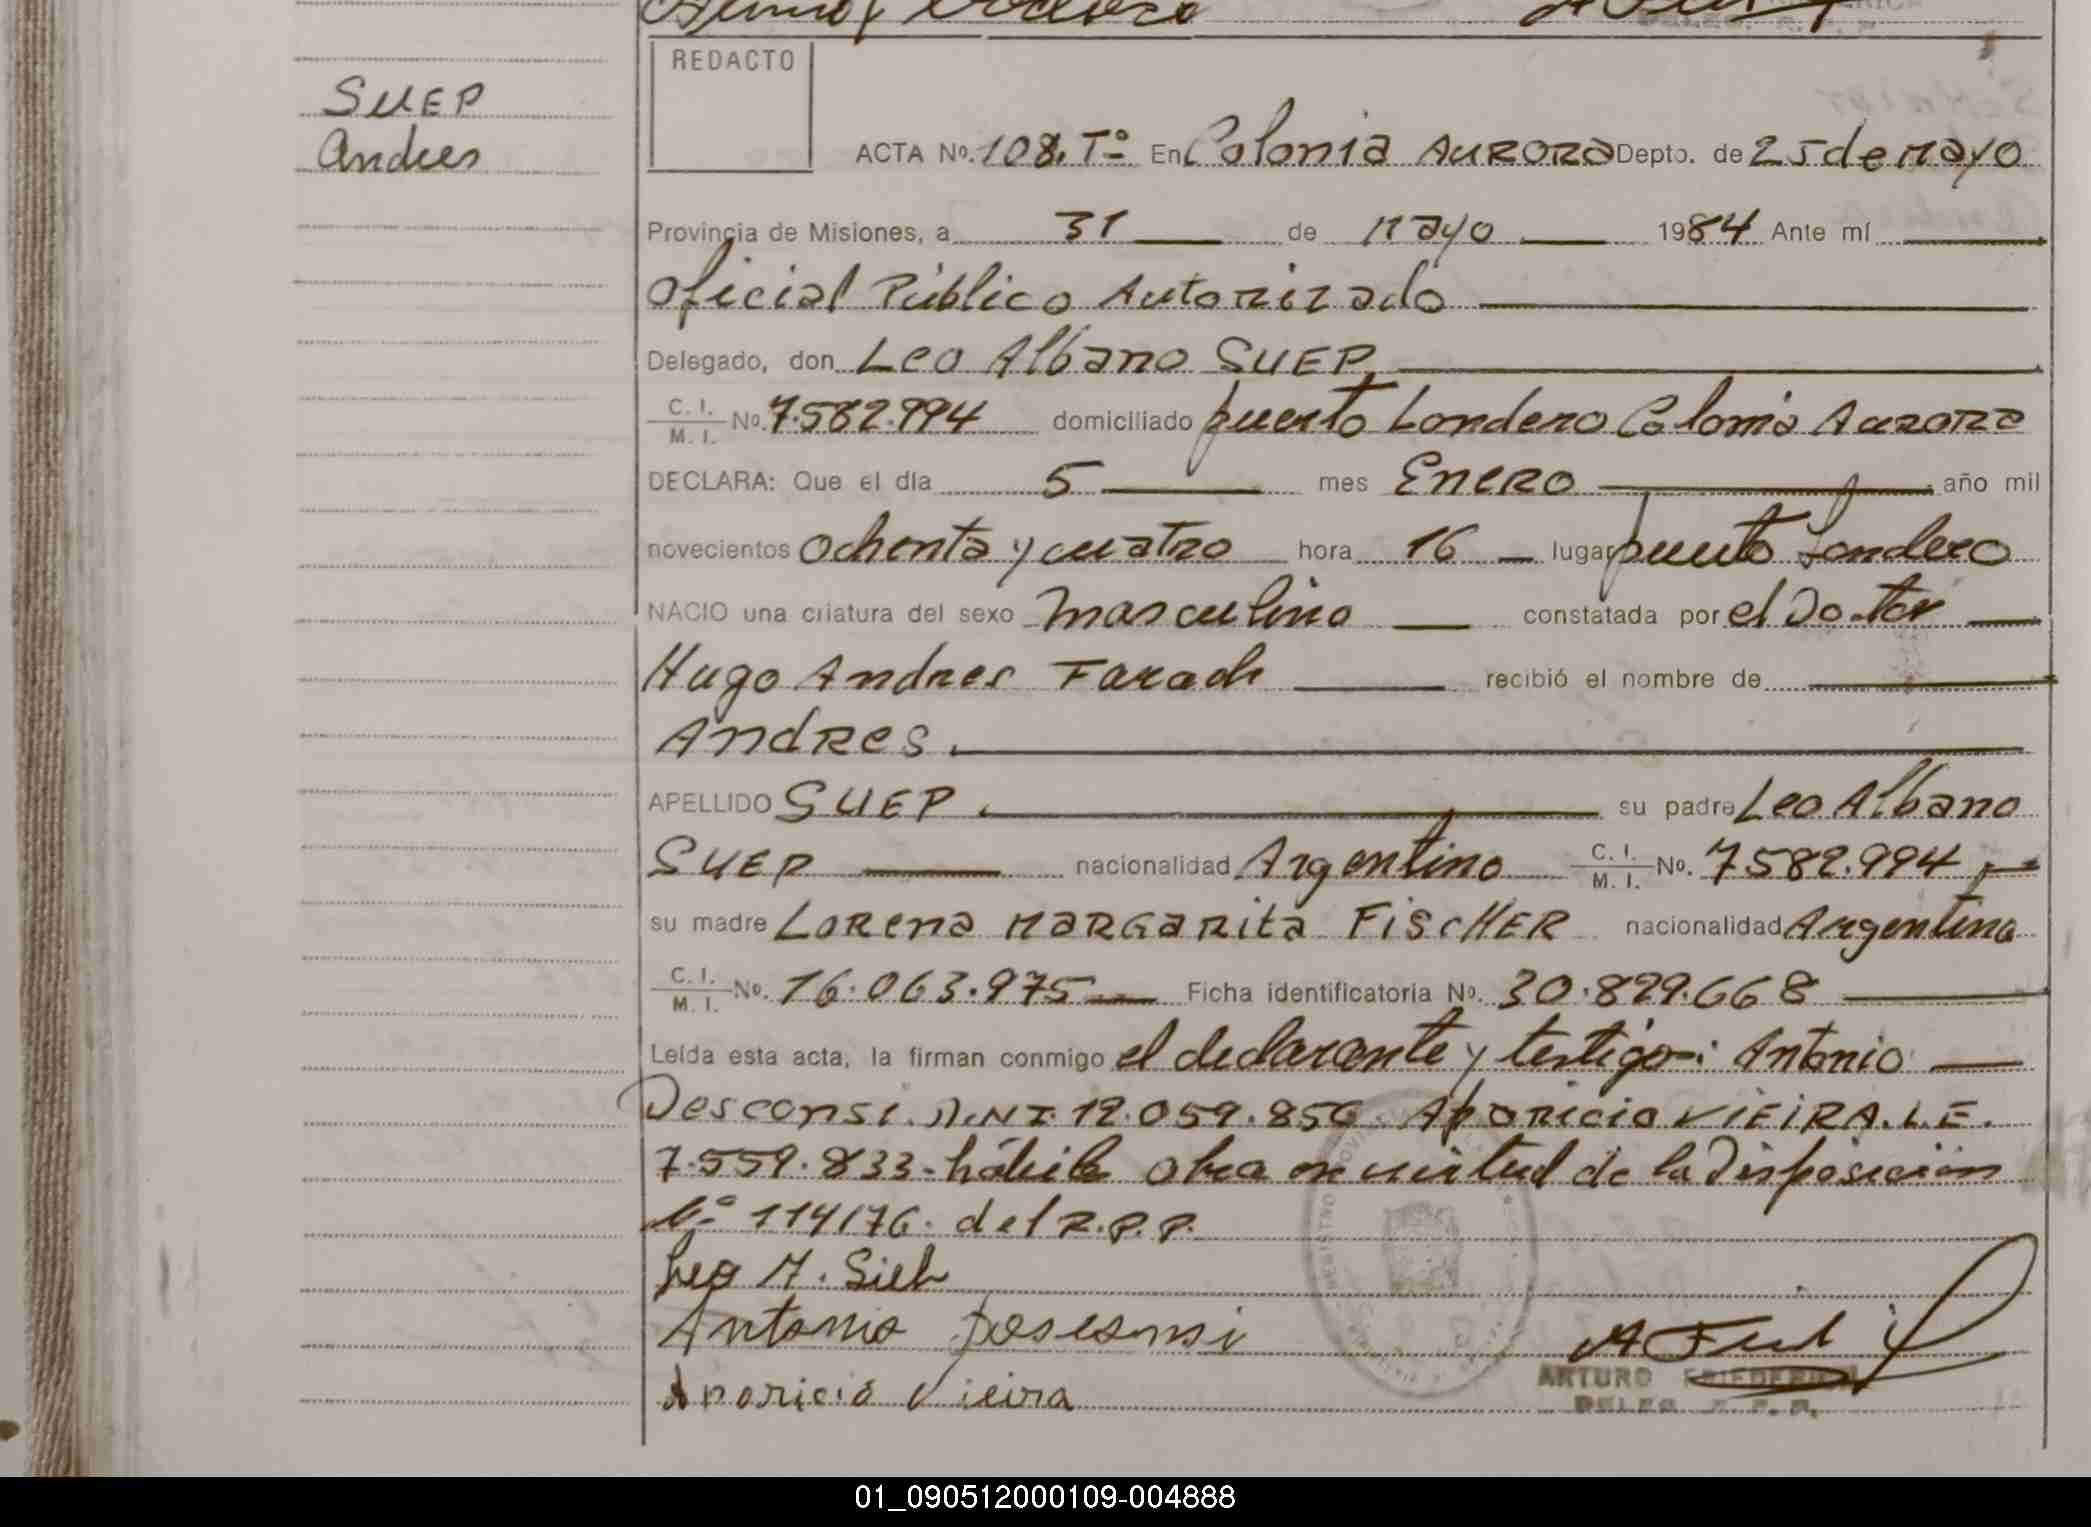 REDACTO
SUEP
Andres
ACTA Nº. 108. Tº En Colonia AURORA Depto. de 25 de Mayo
Provincia de Misiones, a 31 de Mayo 1984 Ante mí
Oficial Público Autorizado
Delegado, don Leo Albano SUEP,
C. I. / M. I. Nº. 7.582.994 domiciliado puerto Londero Colonia Aurora
DECLARA: Que el día 5 mes Enero año mil
novecientos Ochenta y cuatro hora 16 lugar puerto Londero
NACIO una criatura del sexo masculino constatada por el Doctor
Hugo Andres Farach recibió el nombre de
Andres.
APELLIDO SUEP. su padre Leo Albano
SUEP nacionalidad Argentino C. I. / M. I. Nº. 7.582.994
su madre LORENA MARGARITA FISCHER nacionalidad Argentina
C. I. / M. I. Nº. 16.063.975 Ficha identificatoria Nº. 30.829.668
Leída esta acta, la firman conmigo el declarante y testigo: Antonio
Desconsi. D.N.I. 12.059.856 Aparicio VIEIRA. L.E.
7.559.833 - en virtud de la Disposición
Nº 114/76. del R.P.P.
Leo A.
Antonio
Aparicio Vieira
ARTURO
DELEG. R. P. P.
01_090512000109-004888